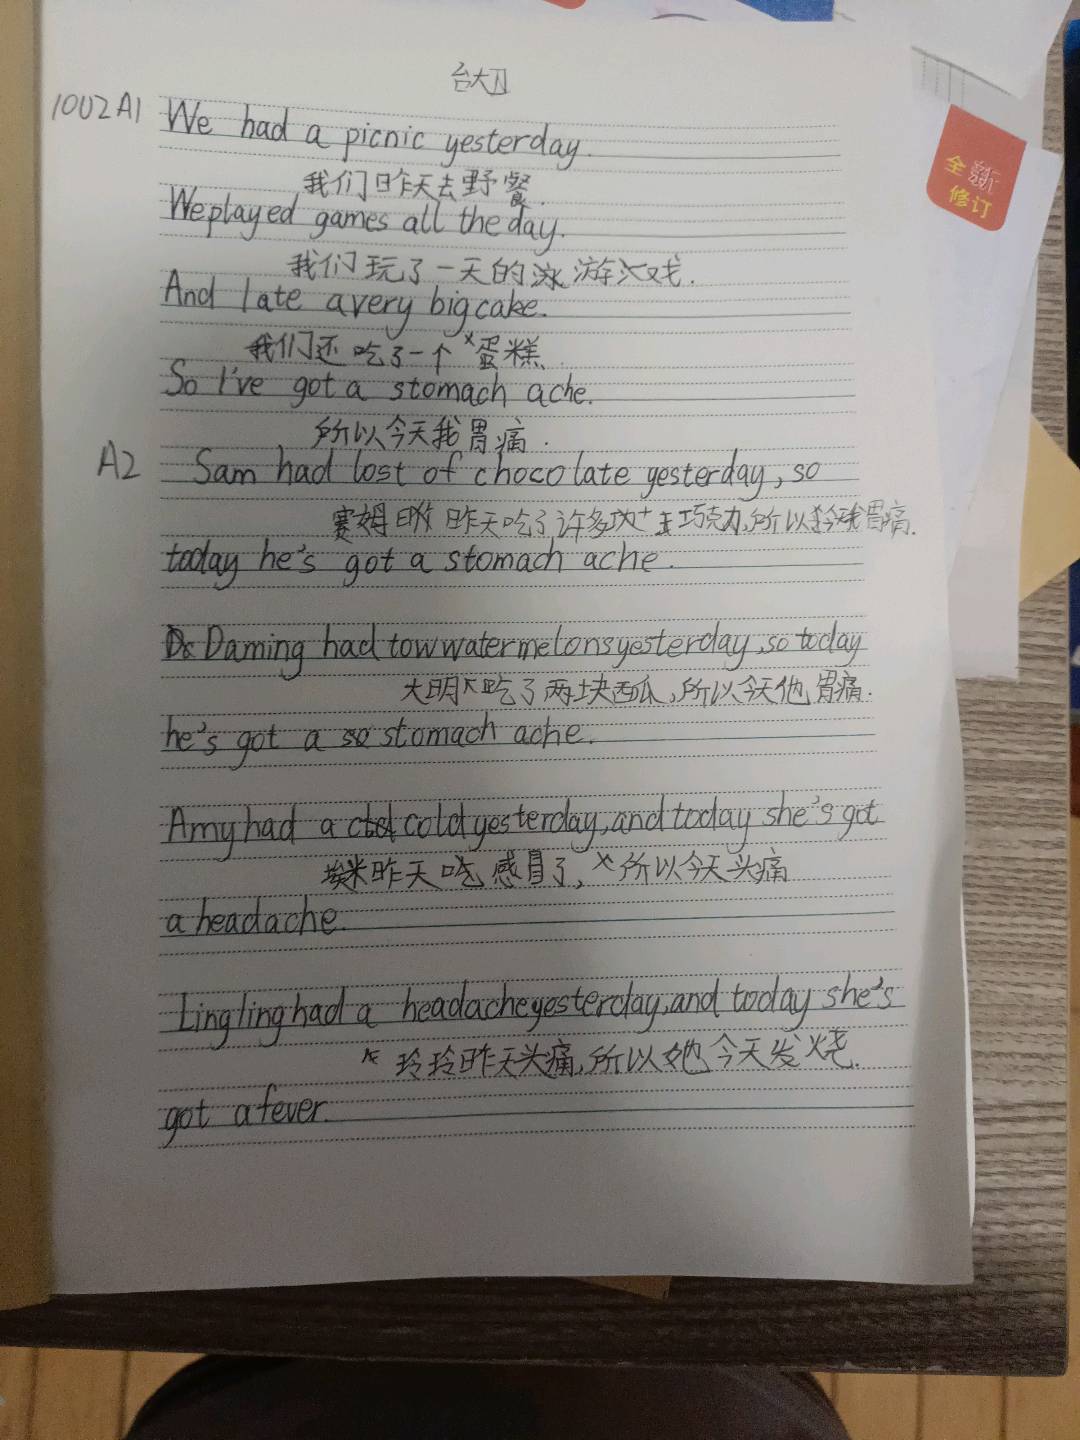 10U2A1 We had a picnic yesterday.
我们昨天去野餐.
We played games all the day.
我们玩了一天的 游 戏.
And late a very big cake.
我们还吃了一个 蛋糕.
So I've got a stomach ache.
所以今天我胃痛.
A2 Sam had lost of chocolate yesterday, so
赛姆 昨天吃了许多 巧克力,所以 今天我胃痛.
today he's got a stomach ache.
Daming had tow watermelons yesterday, so today
大明 吃了两块西瓜,所以今天他胃痛.
he's got a so stomach ache.
Amy had a cold yesterday, and today she's got
埃米昨天吃感冒了, 所以今天头痛
a headache.
Lingling had a headache yesterday, and today she's
玲玲昨天头痛,所以她今天发烧.
got a fever.
全新
修订